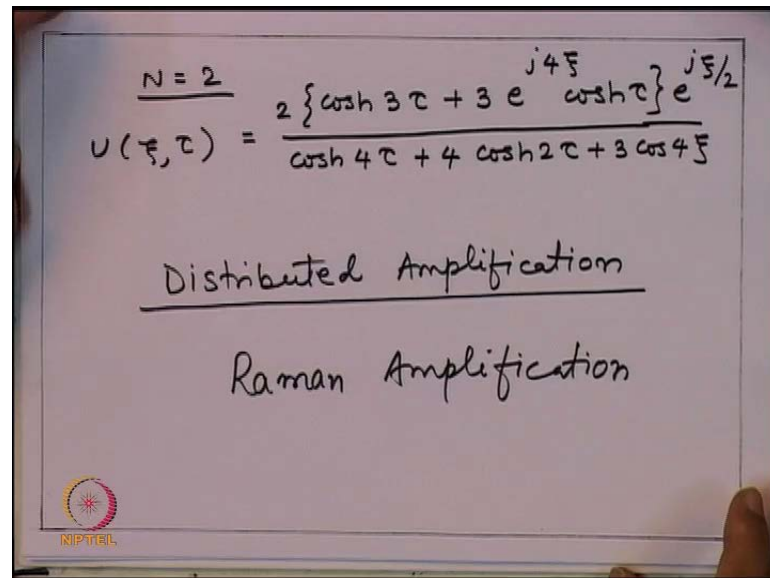 N = 2
U(ξ,τ) = 2{cosh 3τ + 3 e^{j4ξ} cosh τ} e^{jξ/2} / cosh 4τ + 4 cosh 2τ + 3 cos 4ξ
Distributed Amplification
Raman Amplification
NPTEL